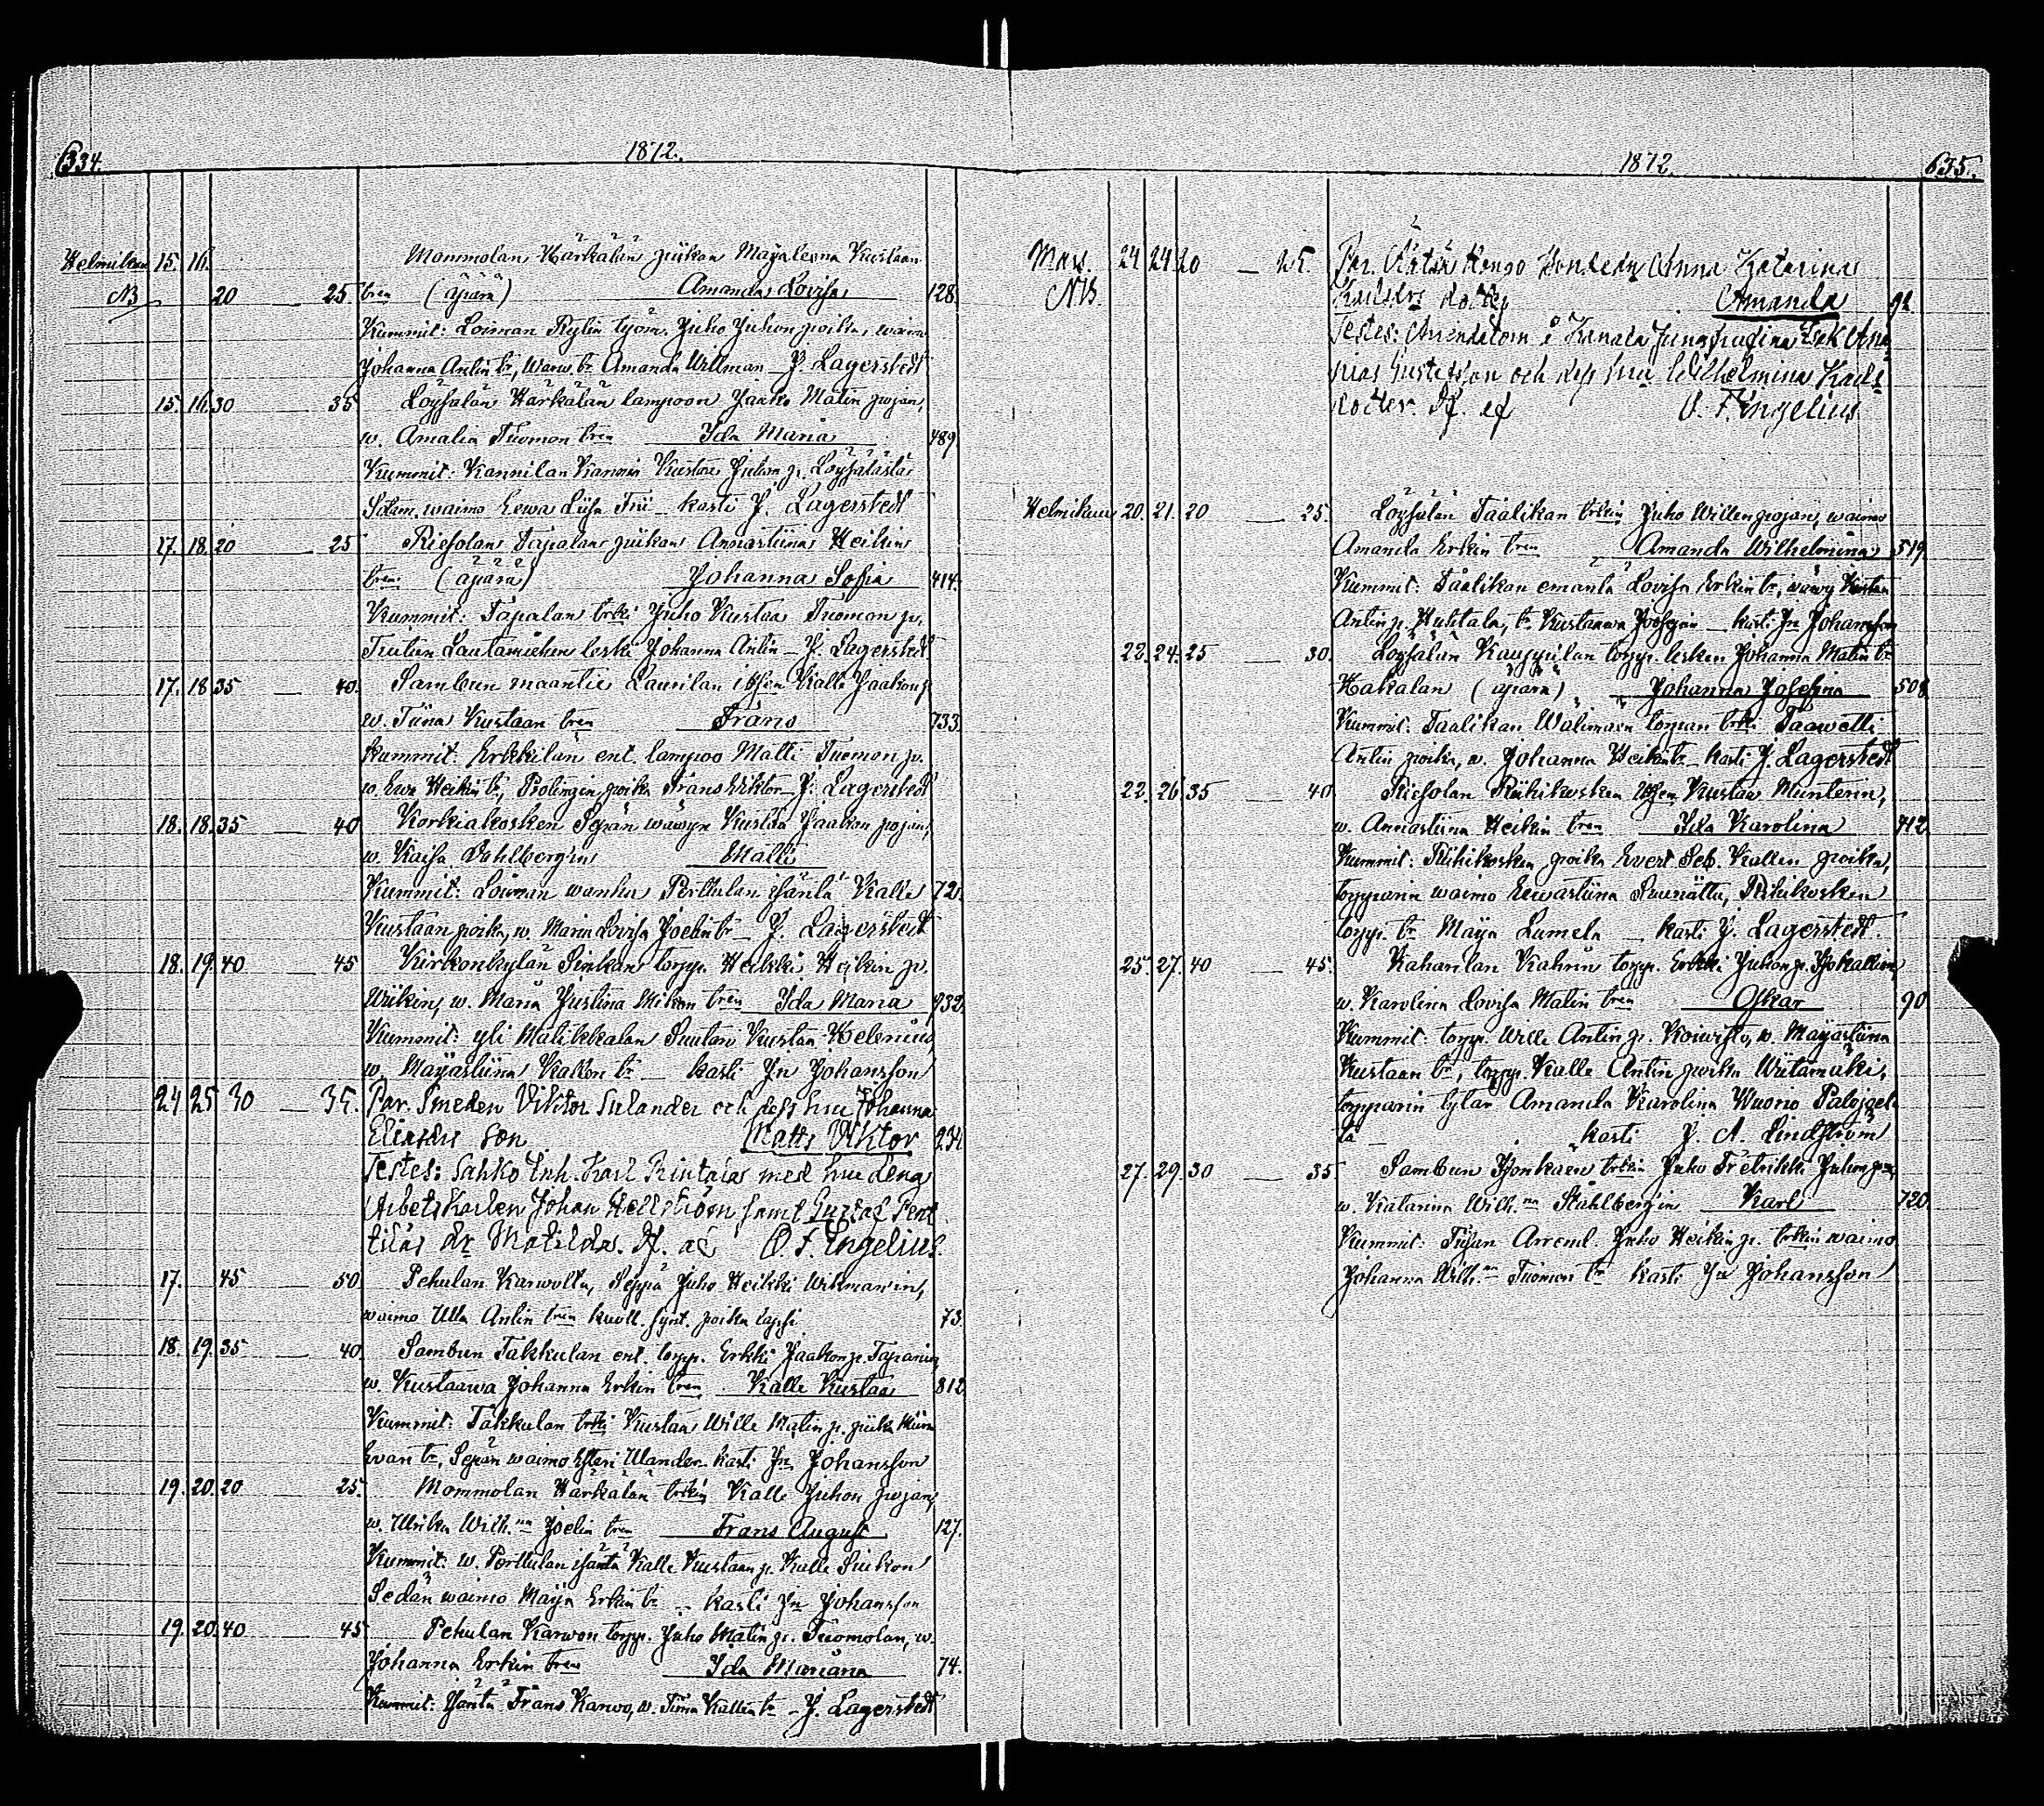 634. 1872.
Helmikuu 15. 16. Mommolan Härkälän piikan Mayaleena Kustaan
NB 20 — 25 tren (äpärä) Amanda Lovisa 128.
Kummit: Loiman Rylin työm. Juho Juhon poika, waimo
Johanna Antin tr, Waww. tr. Amanda Willman — J. Lagerstedt
15. 16. 30 — 35 Löysälän Härkälän lampoon Jaako Matin pojan,
w. Amalia Tuomon tren Ida Maria 489.
Kummit: Kannilan Kannin Kustaa Juhon p. Löysälästä
Sotam. waimo Eewa Liisa Trii — kasti J. Lagerstedt
17. 18. 20 — 25 Riesolan Tapalan piikan Annastiinan Heikin
tren (äpärä) Johanna Sofia 414.
Kummit: Tapalan trki Juho Kustaa Tuomon p.
Lautamiehen leski Johanna Antin — J. Lagerstedt
17. 18 35 — 40. Sambun maantie Laurilan itsen Kalle Jaakon p
w. Tiina Kustaan tren Frans 733.
Kummit: Erkkilän ent. lampoo Matti Tuomon p.
w. Ewa Heikin tr, Prolingin poika Frans Wiktor — J. Lagerstedt
18. 18. 35 — 40 Korkiakosken Sepän wäwyn Kustaa Jaakon pojan,
w. Kaisa Dahlbergin Matti
Kummit: Loiman wanha Perttulan isäntä Kalle 721.
Kustaan poika, w. Maria Lovisa Joelin tr — J. Lagerstedt
18. 19. 40 — 45 Kirkonkylän Sinkan torpp. Heikki Heikin p.
Wiikin, w. Maria Justina Mikon tren Ida Maria 932.
Kummit: yli Matikkalan Suutari Kustaa Helenius,
w. Mayastiina Kallen tr — kasti Jn Johansson
24 25 30 — 35. Par. Smeden Viktor Sulander och dess hu Johanna
Eliasdrs son Matts Viktor 234
Testes: Sahko Inh. Karl Rintala med hu Lena
Arbets Karlen Johan Hellström samt Gustaf Pent
tiläs dr Matilda. Df. af O. F. Engelius.
17. 45 — 50 Pehulan Karwolta, Seppä Juho Heikki Wikmanin,
waimo Ulla Antin tren kuoll. synt. poika lapsi 73.
18. 19. 35 — 40. Sambun Takkulan ent. torpp. Erkki Jaakon p. Tapanin
w. Kustaawa Johanna Erkin tren Kalle Kustaa 812
Kummit: Takkulan trki Kustaa Wille Matin p. piika Miina
Ewan tr, Sepän waimo Esteri Ulander kasti Jn Johansson
19. 20. 20 — 25. Mommolan Härkälän trkin Kalle Juhon pojan,
w. Ulrika Wilh.na Joelin tren Frans August 127.
Kummit: w. Perttulan isäntä Kalle Kustaan p. Kalle Siukon
Sedän waimo Maija Erkin tr — kasti Jn Johansson
19. 20. 40 — 45 Pehulan Karwon torpp. Juho Matin p. Tuomolan, w.
Johanna Erkin tren Ida Mariana 74.
Kummit: Isäntä Frans Karwo, w. Tiina Kallen tr — J. Lagerstedt
1872. 635.
Mars. 24 24 20 — 25. Par. Anna Katarina
NB. Karlsdrs dotter Amanda 91
Testes: Arrendatorn
Gustafsson och dess hu Wilhelmina Karls
dotter. Df. af O. F. Engelius
Helmikuu 20. 21. 20 — 25. Löysälän Taalikan trkin Juho Willen pojan, waimo
Amanda Erkin tren Amanda Wilhelmina 519.
Kummit: Taalikan emäntä Lovisa Erkin tr, wäwy Kustaa
Antin p. Huhtala, tr. Kustaawa Josefiina — kasti Jn Johansson
22. 24. 25 — 30. Löysälän Kauppilan torpp. lesken Johanna Matin tr
Hakalan (äpärä) Johanna Josefiina 508
Kummit: Taalikan Wälimäen torpan trki Taawetti
Antin poika, w. Johanna Heikin tr — kasti J. Lagerstedt
22. 26. 35 — 40 Riesolan Riihikosken itsen Kustaa Munterin,
w. Annastiina Heikin tren Ida Karolina 412
Kummit: Riihikosken poika Evert Seb. Kallen poika,
torpparin waimo Eewastiina Riihikosken
torpp. tr Maija Lumela — kasti J. Lagerstedt.
25. 27. 40 — 45. Kaharilan Kahrin torpp. Erkki Juhon p. Isokallion,
w. Karolina Lovisa Matin tren Oskar 90
Kummit: torpp. Wille Antin p. Koiwisto, w. Mayastiina
Kustaan tr, torpp. Kalle Antin poika Wiitamäki,
torpparin tytär Amanda Karolina Wuorio Palojoel-
ta — kasti J. A. Lindström
27. 29. 30 — 35. Sambun Isonkäen trkin Juho Fretrikki Juhon p.
w. Katarina Wilh.na Ståhlbergin Karl 720.
Kummit: Arrend. Juho Heikin p. trkin waimo
Johanna Wilh.na Tuomon tr kasti Jn Johansson